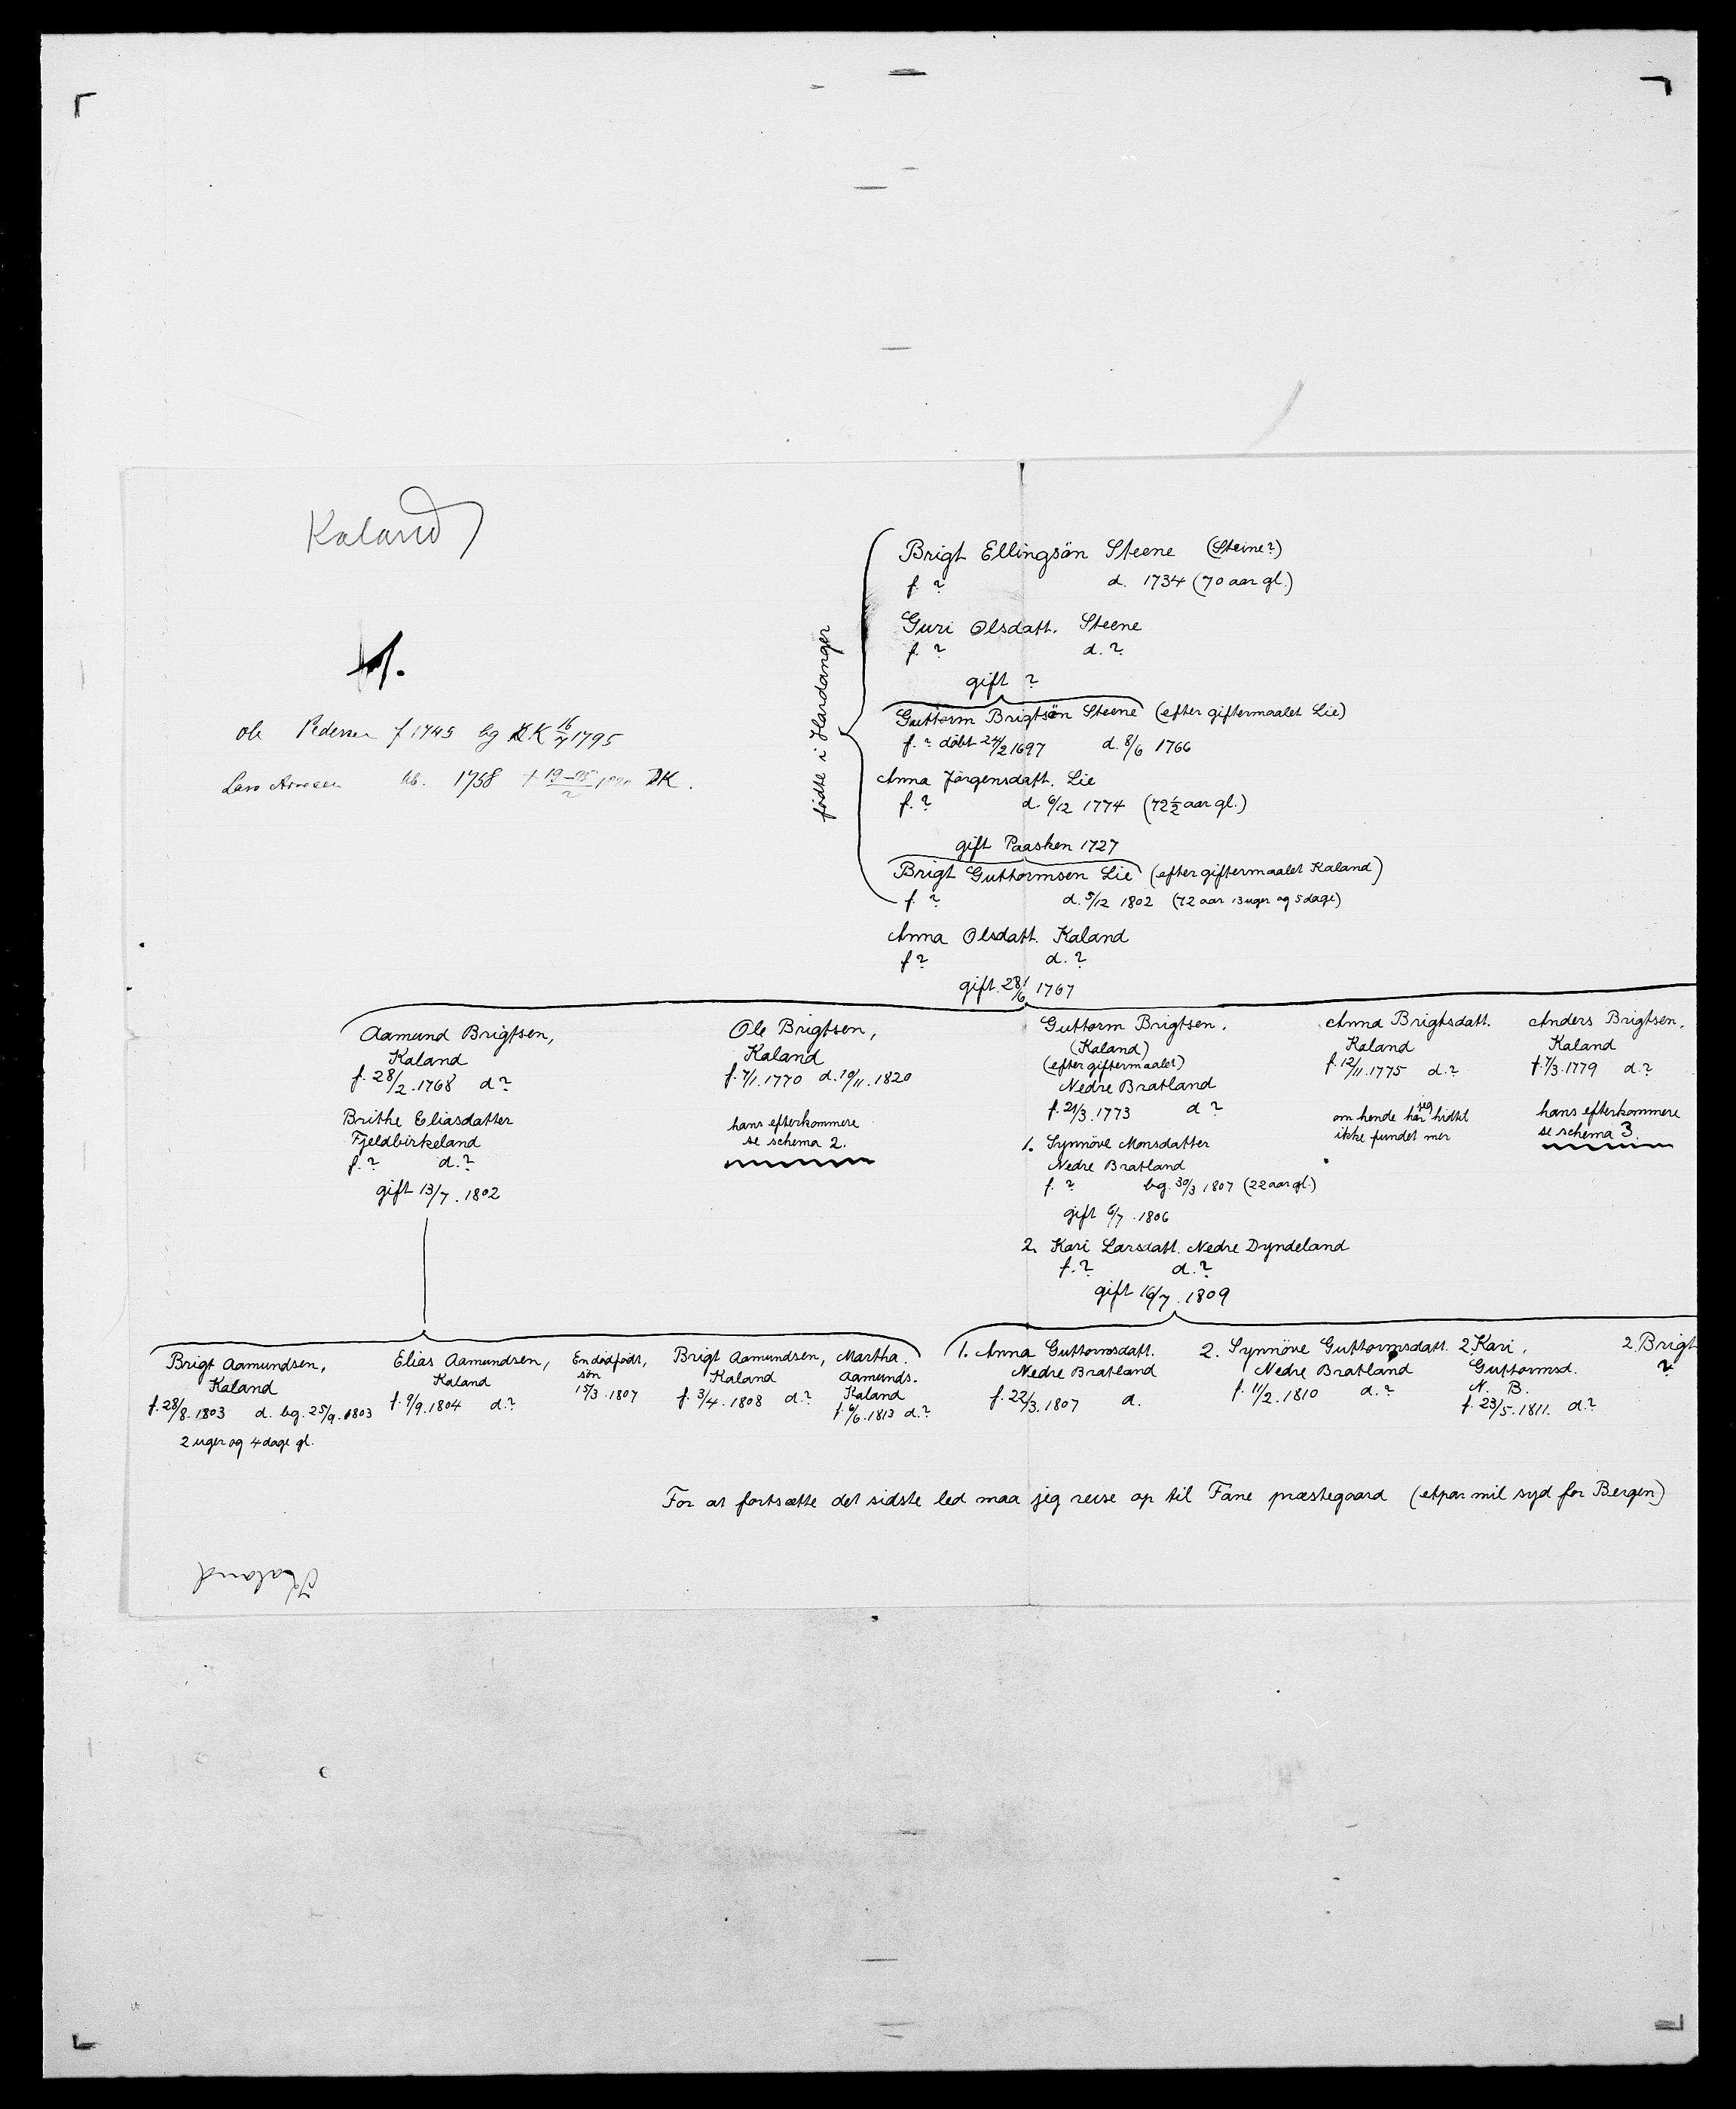 Kaland
Ole Pedersen f 1745 bg DK 16/7 1795
Lars 1758 + 19-25/2 DK.
fødte i Hardanger
Brigt Ellingsön Steene (Steine?)
f. ? d. 1734 (70 aar gl.)
Guri Olsdatt. Steene
f. ? d. ?
gift ?
Guttorm Brigtsön Steene (efter giftermaalet Lie)
f. ? döbt 24/2 1697 d. 8/6 1766
Anna Jörgensdatt. Lie
f. ? d. 6/12 1774 (72½ aar gl.)
gift Paasken 1727
Brigt Guttormsen Lie (efter giftermaalet Kaland)
f. ? d. 5/12 1802 (72 aar 13 uger og 5 dage)
Anna Olsdatt. Kaland
f ? d. ?
gift 28/6 1767
Aamund Brigtsen,
Kaland
f. 28/2. 1768 d ?
Brithe Eliasdatter
Fjeldbirkeland
f. ? d. ?
gift 13/7. 1802
Ole Brigtsen,
Kaland
f. 7/1. 1770 d. 10/11. 1820
hans efterkommere
se schema 2.
Guttorm Brigtsen.
(Kaland)
(efter giftermaalet)
Nedre Bratland
f. 21/3. 1773 d ?
1. Synnöve Monsdatter
Nedre Bratland
f. ? bg. 30/3 1807 (22 aar gl.)
gift 6/7. 1806
2. Kari Larsdatt. Nedre Dyndeland
f. ? d. ?
gift 16/7. 1809
Anna Brigtsdatt.
Kaland
f. 12/11. 1775 d. ?
om hende har jeg hidtil
ikke fundet mer
Anders Brigtsen,
Kaland
f. 7/3. 1779 d. ?
hans efterkommere
se schema 3.
Brigt Aamundsen,
Kaland
f. 28/8. 1803 d. bg. 25/9. 1803
2 uger og 4 dage gl.
Elias Aamundsen,
Kaland
f. 9/9. 1804 d. ?
En dødfødt,
sön
15/3. 1807
Brigt Aamundsen,
Kaland
f. 3/4. 1808 d. ?
Martha.
Aamunds.
Kaland
f. 6/6. 1813 d. ?
1. Anna Guttormsdatt.
Nedre Bratland
f. 22/3. 1807 d.
2. Synnöve Guttormsdatt.
Nedre Bratland
f. 11/2. 1810 d. ?
2. Kari,
Guttormsd.
N. B.
f. 23/5. 1811. d. ?
2. Brigt
?
For at fortsætte det sidste led maa jeg reise op til Fane præstegaard (et par mil syd for Bergen)
Kaland